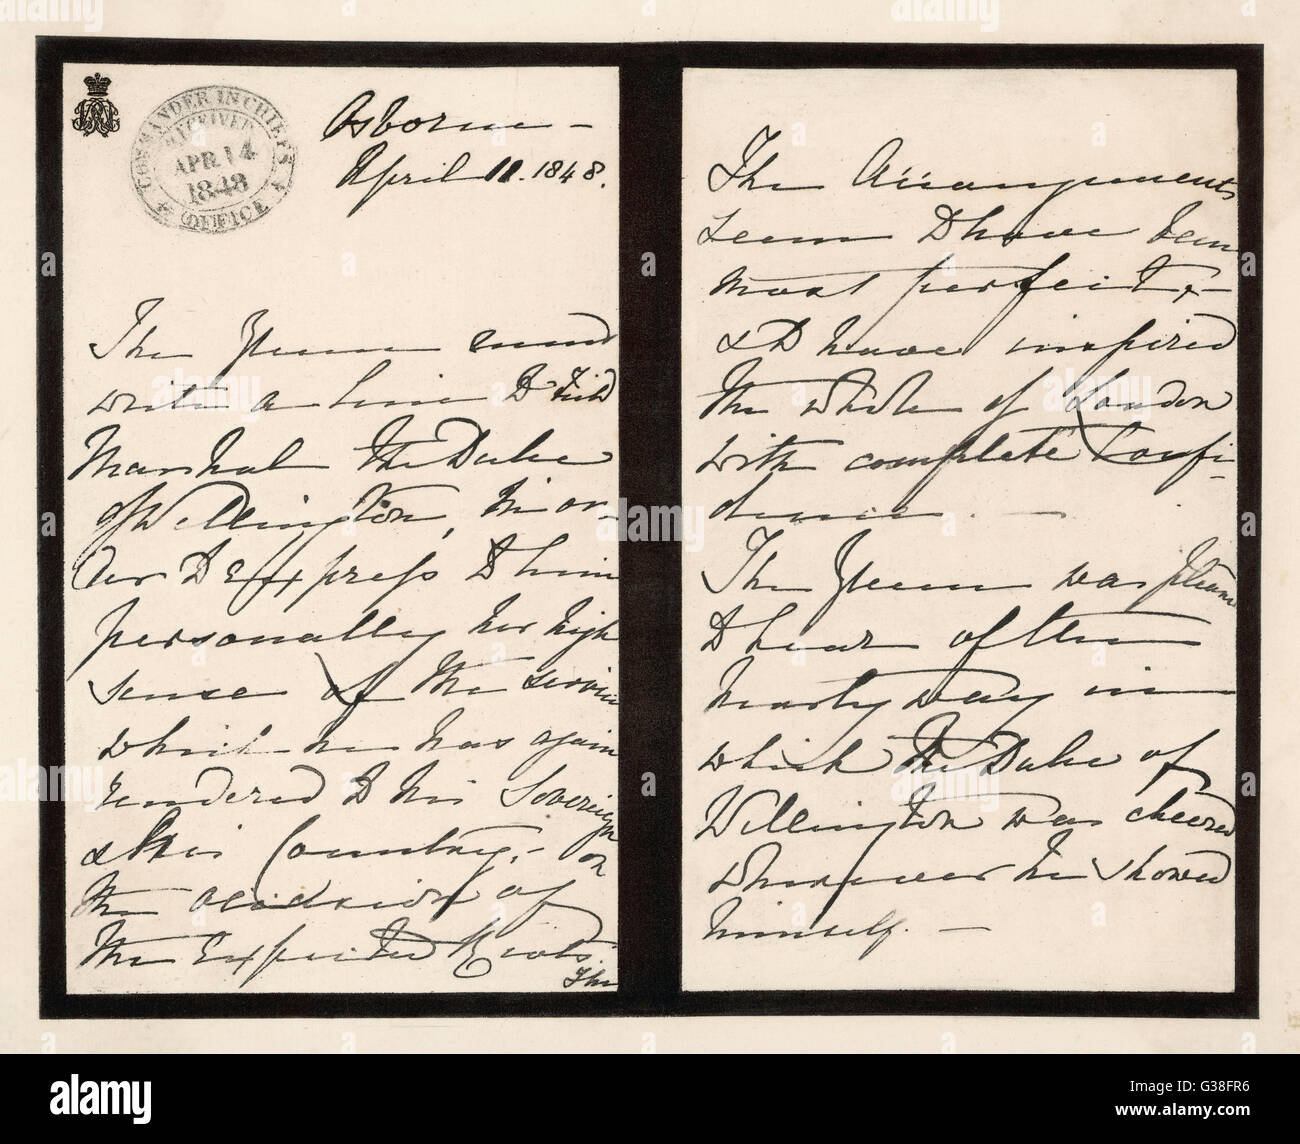 COMMANDER IN CHIEF'S
RECEIVED
APR 14
1848
OFFICE
Osborne —
April 11. 1848.
The Queen must
write a line to Field
Marshal the Duke
of Wellington, in or-
der to Express to him
personally her high
sense of the service
which he has again
rendered to his Sovereign
& this Country, — on
the occasion of
the Expected Riots.
The
The Arrangements
seem to have been
most perfect, —
& to have inspired
the whole of London
with complete Confi-
dence. —
The Queen was pleased
to hear of the
hearty way in
which the Duke of
Wellington was cheered
whenever he showed
himself. —
alamy
Image ID: G38FR6
www.alamy.com